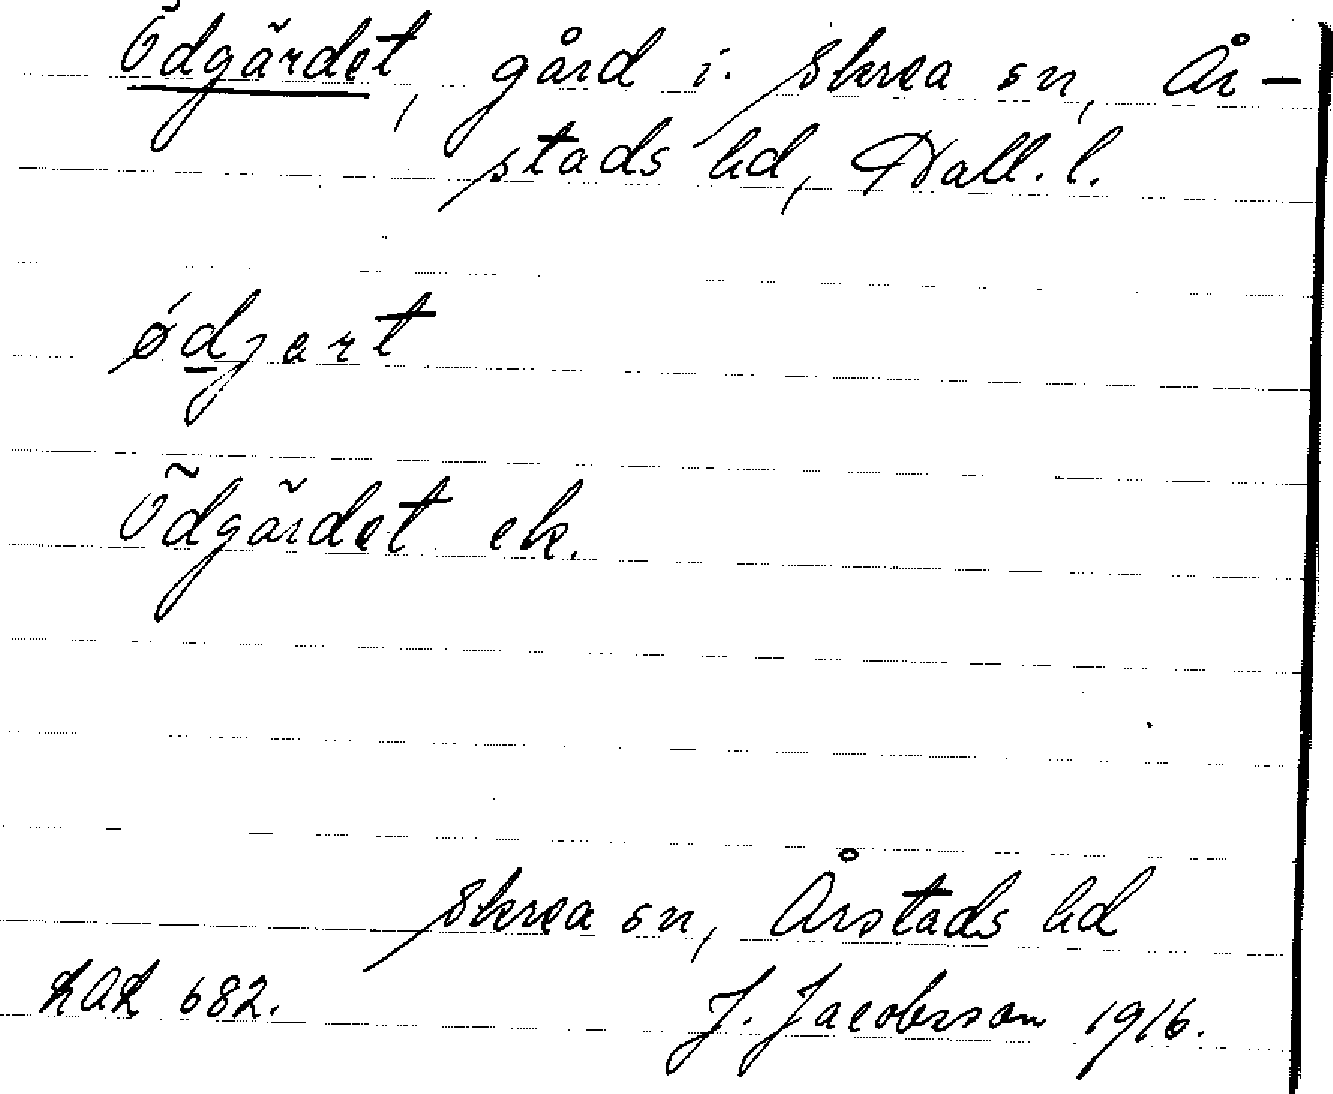 Ödgärdet, gård i Skrea sn, År-
stads hd, Hall. l.
ǿdjart
Ödgärdet ek.
Skrea sn, Årstads hd
LAL 682.
J. Jacobsson 1916.